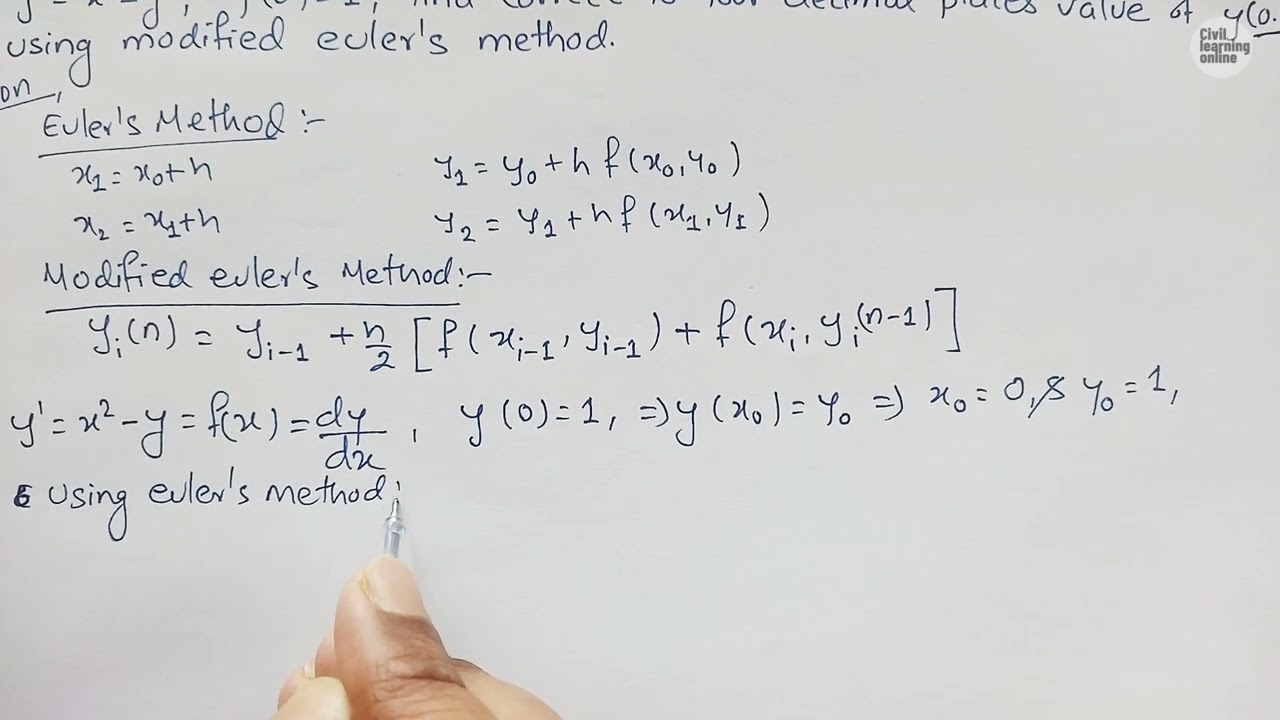 y' = x² - y , y(0) = 1 , find correct to four decimal places value of y(0.
using modified euler's method.
on,
Euler's Method :-
x₁ = x₀ + h y₁ = y₀ + h f(x₀, y₀)
x₂ = x₁ + h y₂ = y₁ + h f(x₁, y₁)
Modified euler's Method :-
yᵢ(n) = yᵢ₋₁ + h/2 [f(xᵢ₋₁, yᵢ₋₁) + f(xᵢ, yᵢ(n-1)]
y' = x² - y = f(x) = dy/dx , y(0) = 1, ⇒ y(x₀) = y₀ ⇒ x₀ = 0, & y₀ = 1,
Using euler's method:
Civil
learning
online